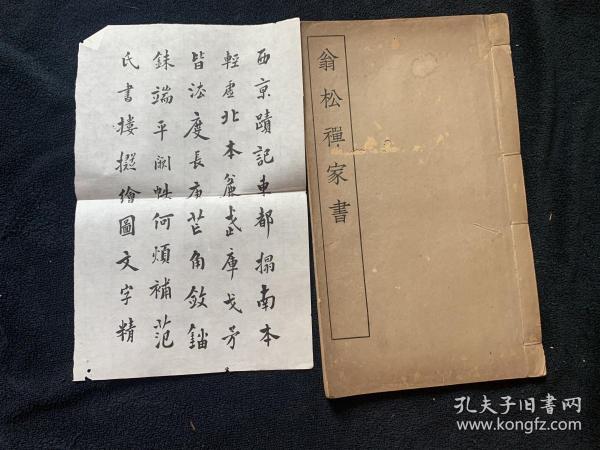 西京蹟記東都搨南本
輕虛北本麁武庫戈矛
皆法度長庚芒角斂錙
銖端平闕帙何煩補范
氏書樓撮繪圖文字精
翁松禪家書
孔夫子旧书网
www.kongfz.com